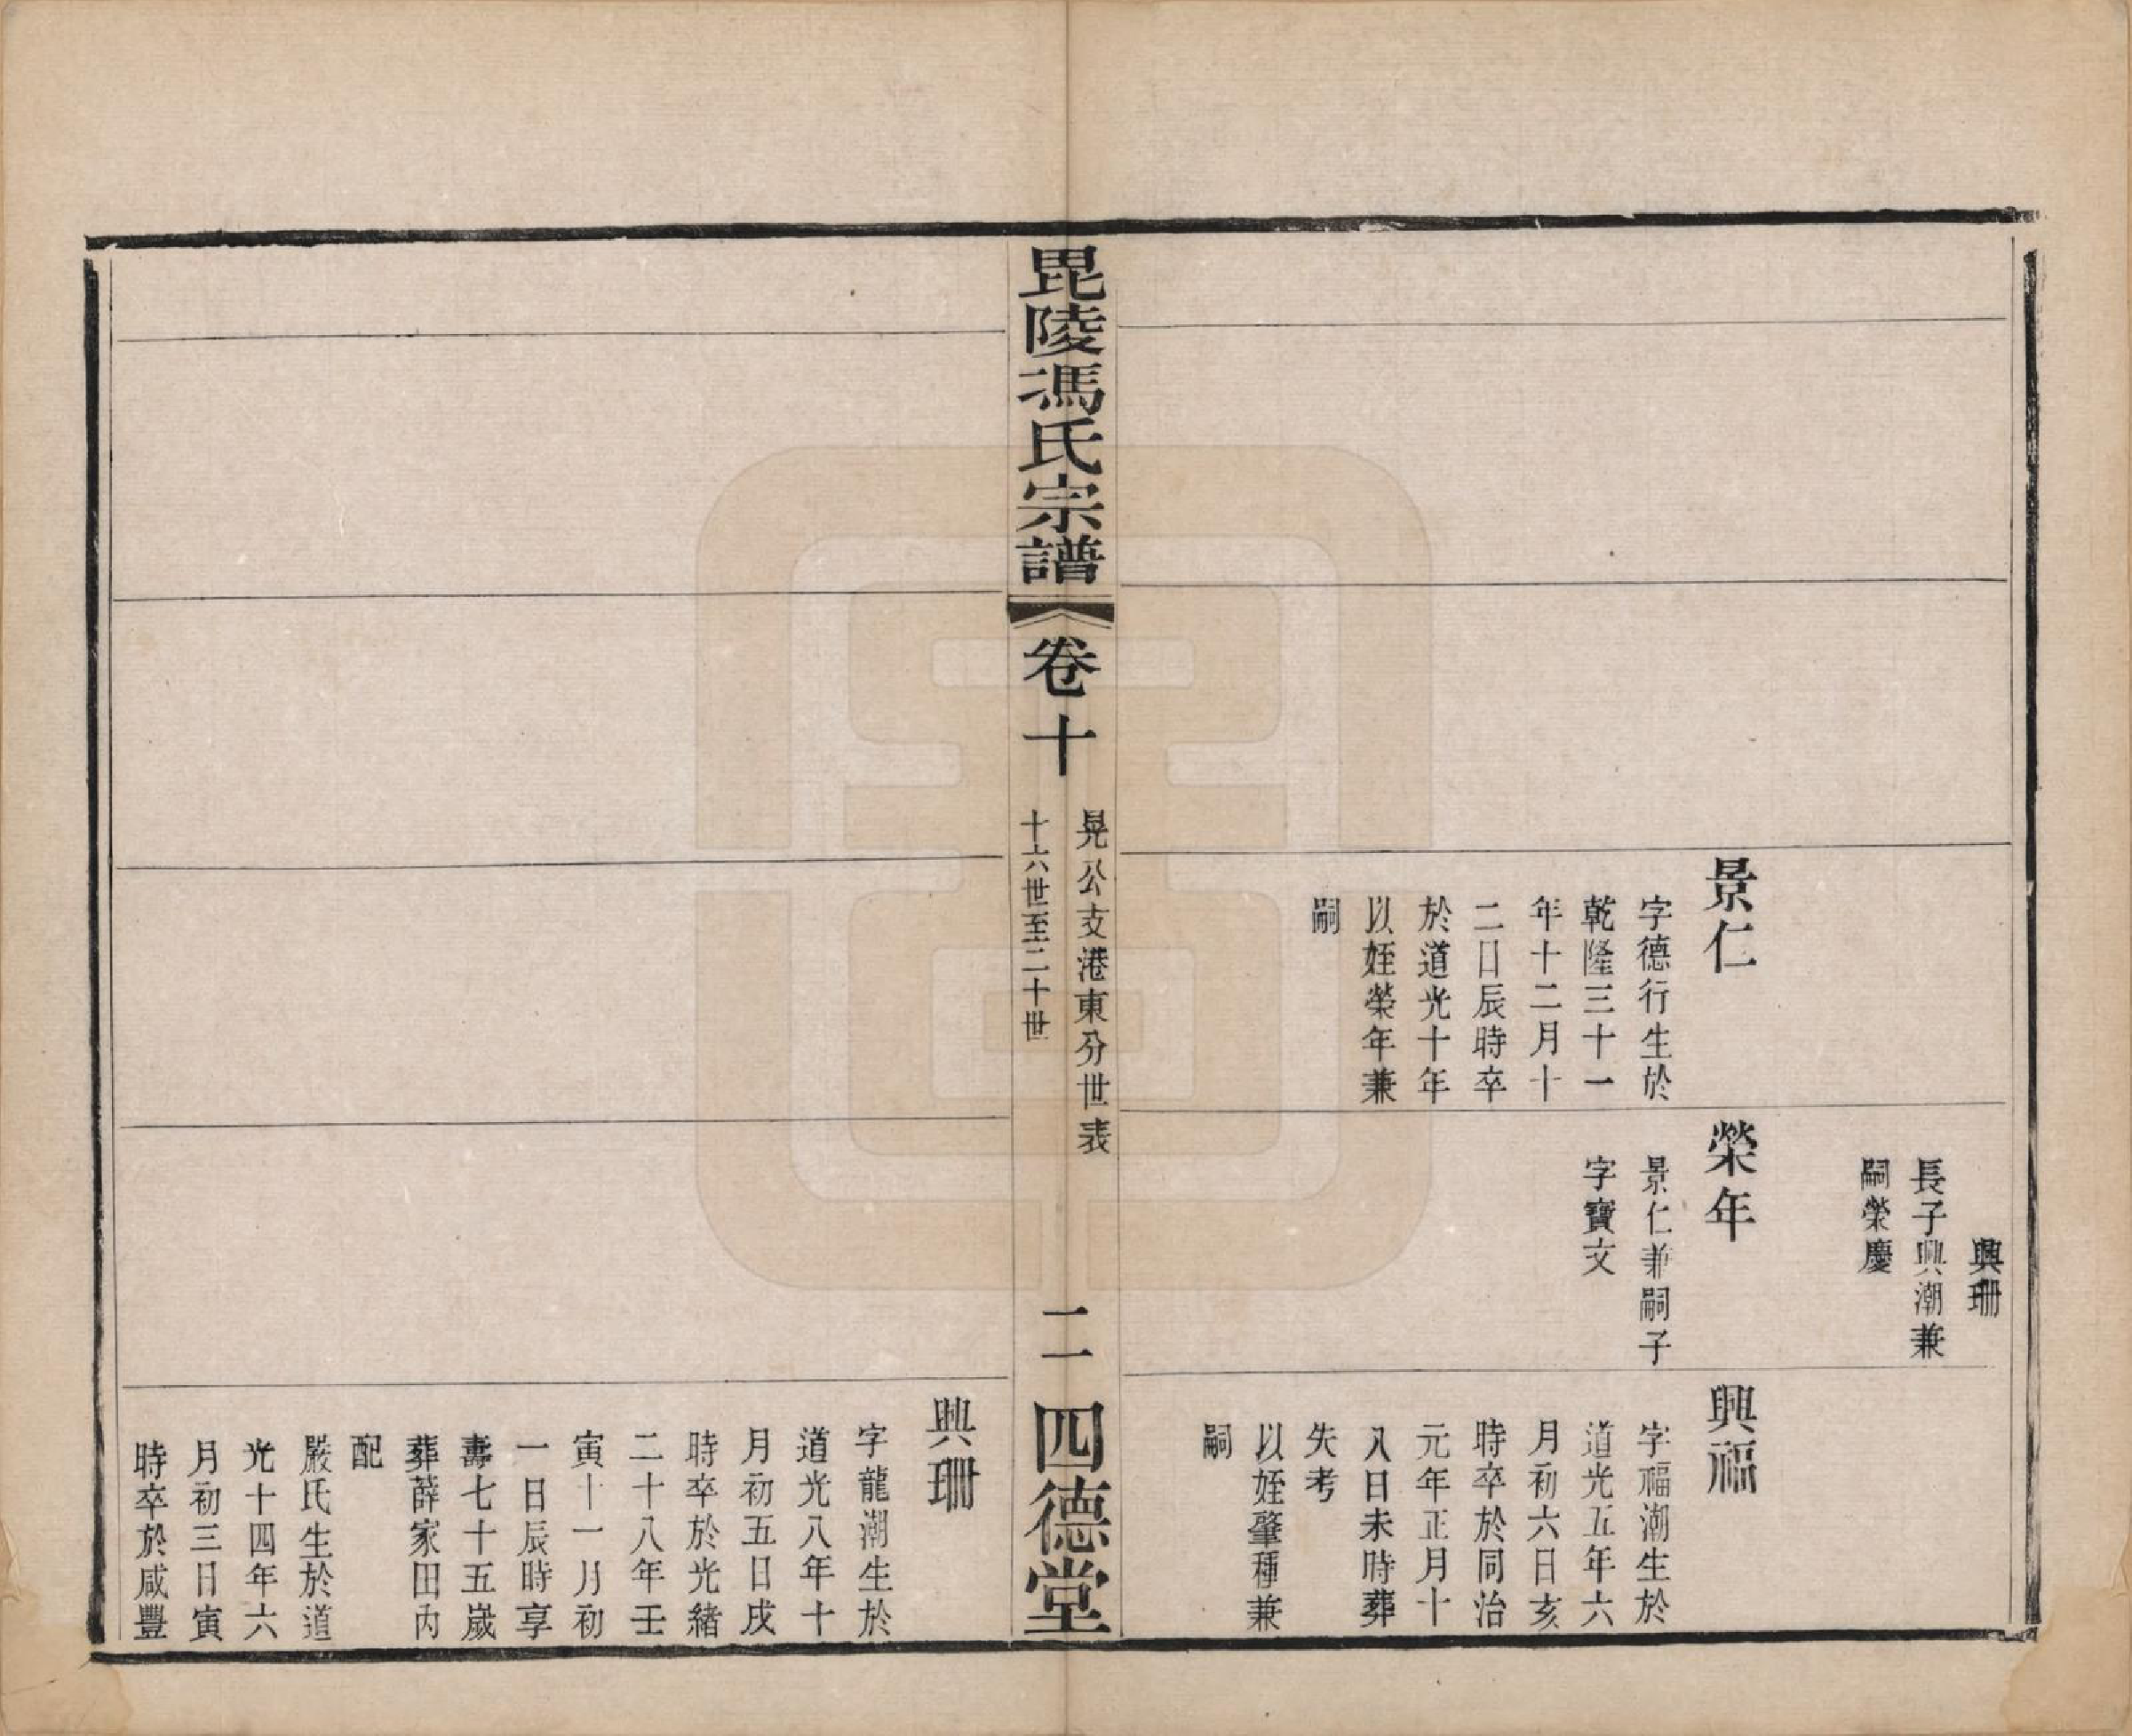 興珊
長子興潮兼
嗣榮慶
景仁
字德行生於
乾隆三十一
年十二月十
二日辰時卒
於道光十年
以姪榮年兼
嗣
榮年
景仁兼嗣子
字寶文
興福
字福潮生於
道光五年六
月初六日亥
時卒於同治
元年正月十
八日未時葬
失考
以姪肇種兼
嗣
毘陵馮氏宗譜
卷十
晃公支港東分世表
十六世至二十世
二
四德堂
興珊
字龍潮生於
道光八年十
月初五日戌
時卒於光緒
二十八年壬
寅十一月初
一日辰時享
壽七十五歲
葬薛家田內
配
嚴氏生於道
光十四年六
月初三日寅
時卒於咸豐